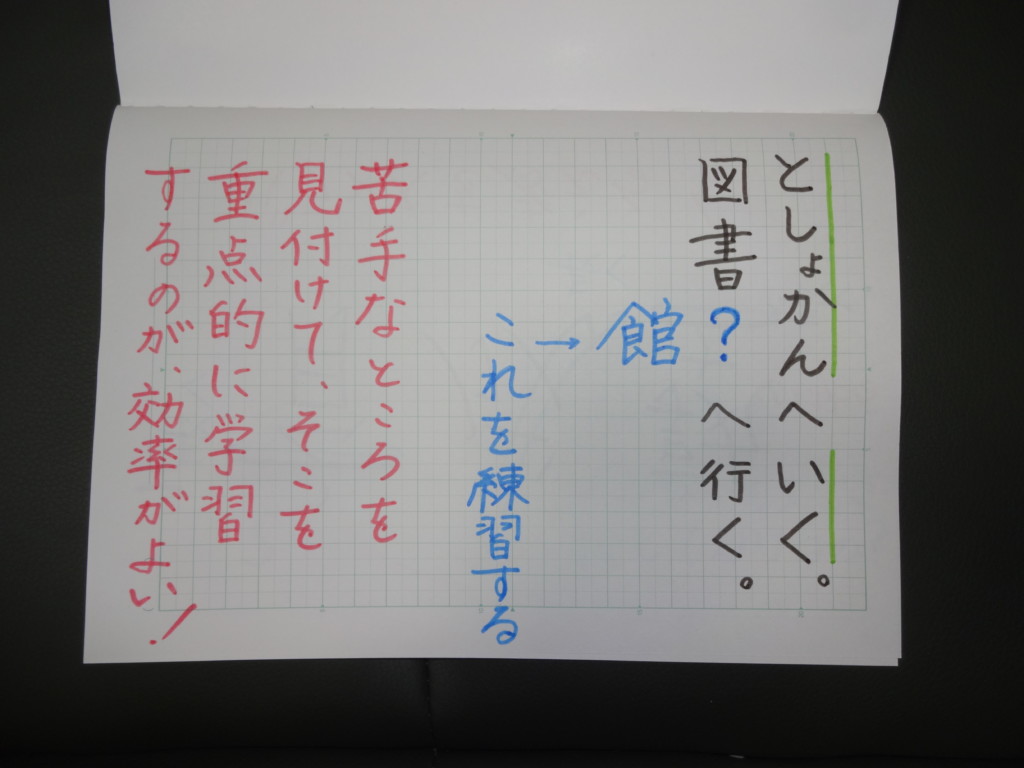 としょかんへいく。
図書?へ行く。
館
→これを練習する
苦手なところを
見付けて、そこを
重点的に学習
するのが、効率がよい!